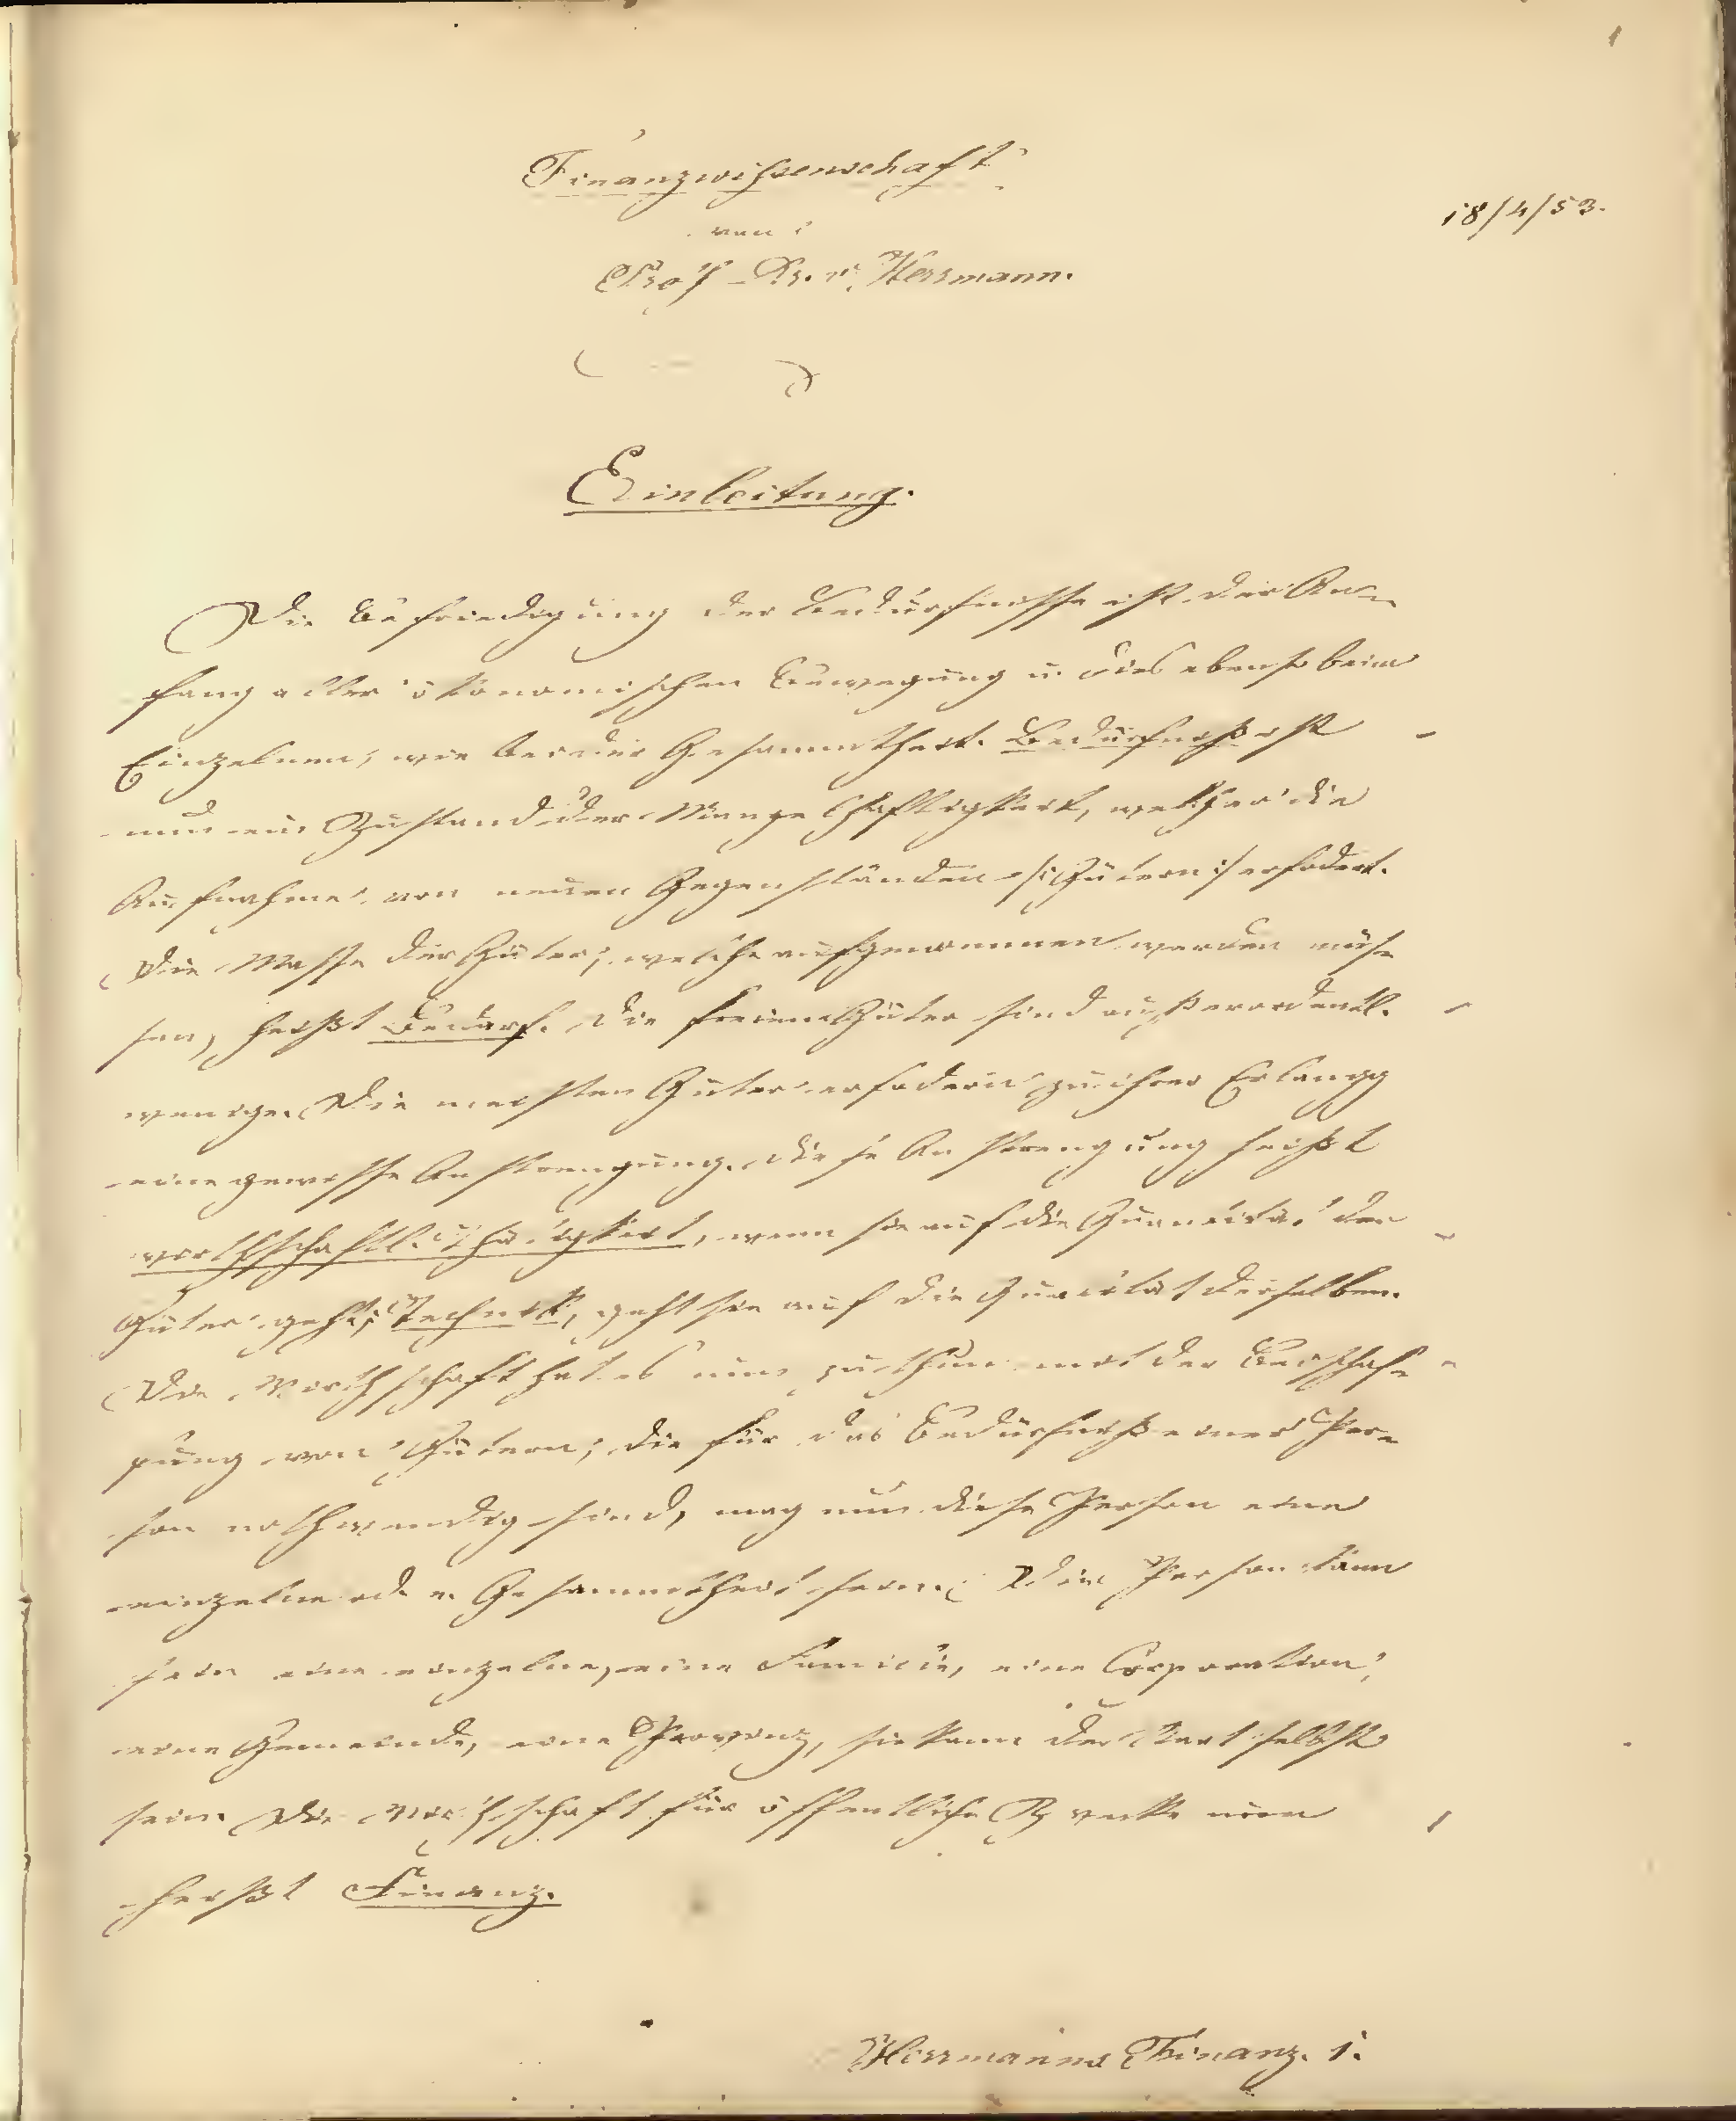 1
Finanzwissenschaft
18/4/53.
von
Prof Dr. v. Herrmann.
Einleitung.
Die Befriedigung der Bedürfnisse ist der An-
fang aller ökonomischen Bewegung u. dies ebenso beim
Einzelnen, wie bei der Gesammtheit. Bedürfniß ist
nun ein Zustand der Mangelhaftigkeit, welcher die
Aufnahme von neuen Gegenständen /: Gütern :/ erfodert.
Die Masse der Güter, welche aufgenommen werden müs-
sen, heißt Bedarf. Die freien Güter sind außerordentl.
wenige. Die meisten Güter erfodern zu ihrer Erlangg
eine gewisse Anstrengung. Diese Anstrengung heißt
wirthschaftl. Thätigkeit, wenn sie auf die Quantität der
Güter geht; Technik, geht sie auf die Qualität derselben.
Die Wirthschaft hat es nun zu thun mit der Beschaf-
fung von Gütern, die für das Bedürfniß einer Per-
son nothwendig sind, mag nun diese Person eine
einzelne od. e. Gesammtheit sein. Die Person kann
sein eine einzelne, eine Familie, eine Corporation,
eine Gemeinde, eine Provinz, sie kann der Staat selbst
sein. Die Wirthschaft für öffentliche Zwecke nun
heißt Finanz.
Herrmanns Finanz. 1.